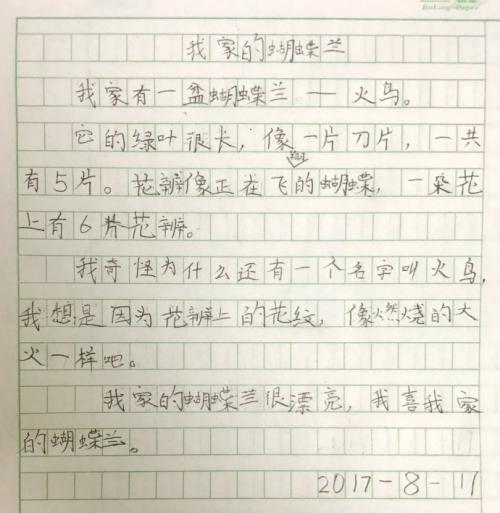 我家的蝴蝶兰
我家有一盆蝴蝶兰——火鸟。
它的绿叶很长，像一片刀片，一共
有5片。花辨像正在飞的蝴蝶，一朵花
上有6片花辨。
我奇怪为什么还有一个名字叫火鸟，
我想是因为花辨上的花纹，像燃烧的大
火一样吧。
我家的蝴蝶兰很漂亮，我喜我家
的蝴蝶兰。
2017-8-11